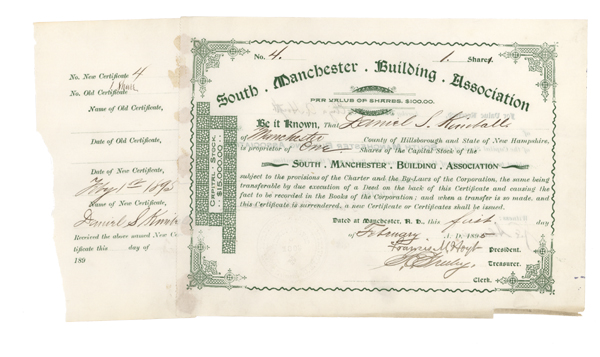 No. New Certificate 4
No. Old Certificate
Name of Old Certificate,
Date of Old Certificate,
Date of New Certificate,
Feby 1st 1895
Name of New Certificate,
Daniel S. Kimball
Received the above named New Cer
tificate this day of
189
No. 4. 1. Shares.
South Manchester Building Association
PAR VALUE OF SHARES, $100.00.
CAPITAL STOCK $15,000.00
Be it Known, That Daniel S. Kimball
of Manchester County of Hillsborough and State of New Hampshire,
is proprietor of One Shares of the Capital Stock of the
SOUTH MANCHESTER BUILDING ASSOCIATION
subject to the provisions of the Charter and the By-Laws of the Corporation, the same being
transferable by due execution of a Deed on the back of this Certificate and causing the
fact to be recorded in the Books of the Corporation; and when a transfer is made, and
this Certificate is surrendered, a new Certificate or Certificates shall be issued.
Dated at Manchester, N. H. this first day
of February A. D. 1895
M. Hoyt President.
Treasurer.
Clerk.